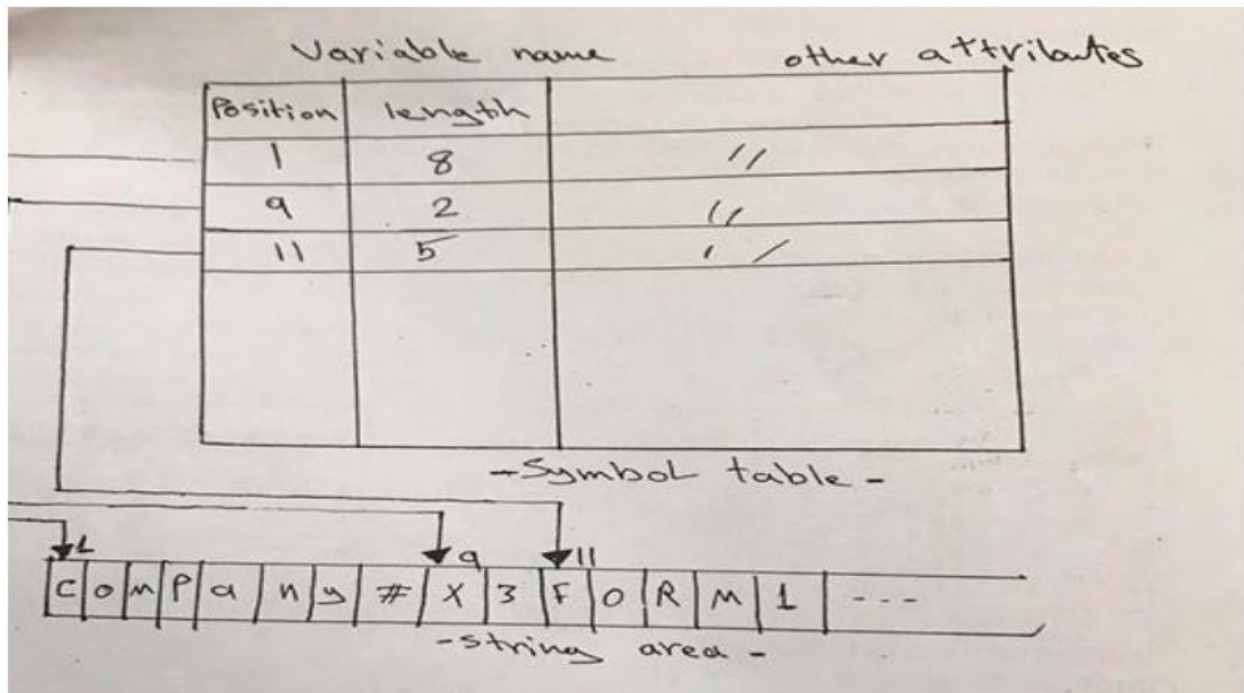 Variable name other attributes
Position length
1 8 "
9 2 "
11 5 "
-Symbol table-
1 9 11
C o m P a n y # X 3 F O R M 1 ---
-string area-